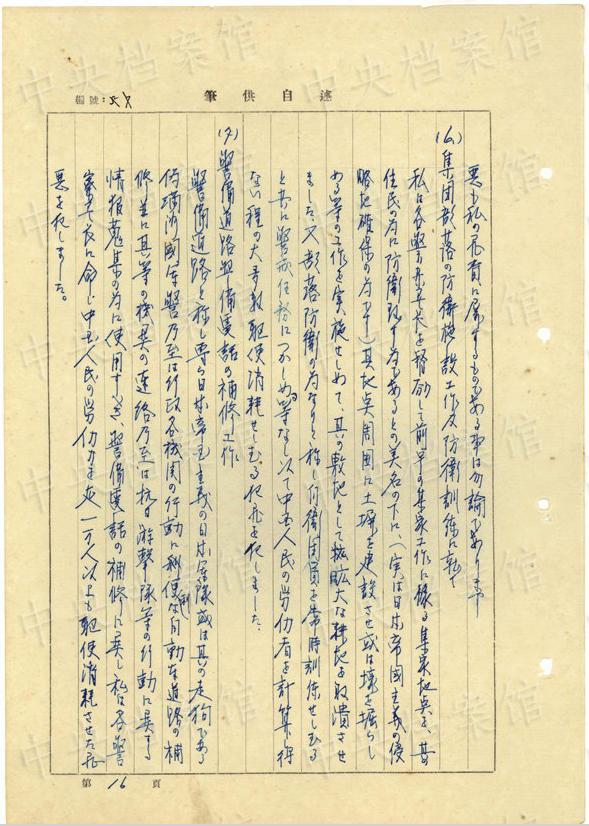 編號:
述自供筆
悪も私の罪責に属するものである事は勿論であります
(6)集団部落の防衛構設工作及防衛訓練に就て
私は各警察署長を督励して前年の集家工作に據る集家地点を、其
住民の為に防衛する為であるとの美名の下に、(実は日本帝国主義の侵
略地確保の為です)其地点周囲に土壕を建設させ或は壕を掘らし
める等の工作を実施せしめて、其の敷地として擴大な耕地を取潰させ
ました、又部落防衛の為なりと称し自衛団員を常時訓練せしむる
と共に警戒任務につかしめる等なし以て中国人民の労働者を計算得
ない程の大多数駆使消耗せしむる犯罪を犯しました。
(7)警備道路、警備電話の補修工作
警備道路と称し専ら日本帝国主義の日本軍隊或は其の走狗である
偽満洲国軍警乃至は行政各機関の行動に利便な自動車道路の補
修並に其等の機関の連絡乃至は抗日游撃隊等の行動に関する
情報蒐集の為に使用すべき、警備電話の補修に関し私は各警
察署長に命じ中国人民の労働力を延一万人以上も駆使消耗させた罪
悪を犯しました。
第 16 頁
中央档案馆